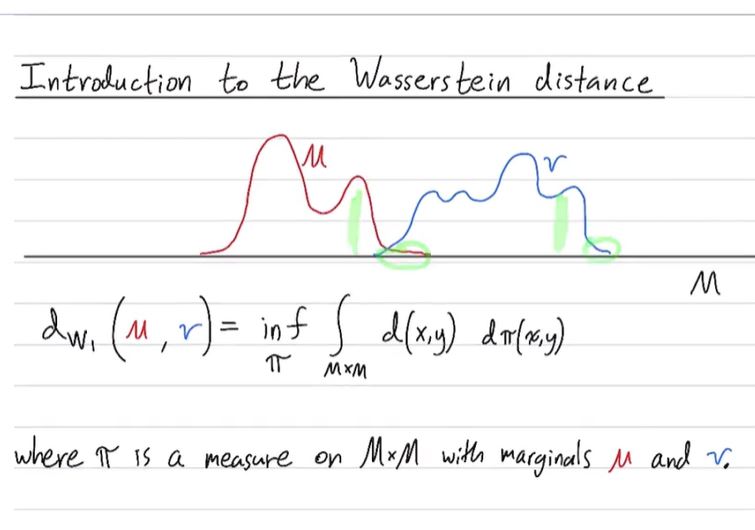 Introduction to the Wasserstein distance
μ ν
M
d_{W_1}(μ, ν) = inf_π ∫_{M×M} d(x,y) dπ(x,y)
where π is a measure on M×M with marginals μ and ν.